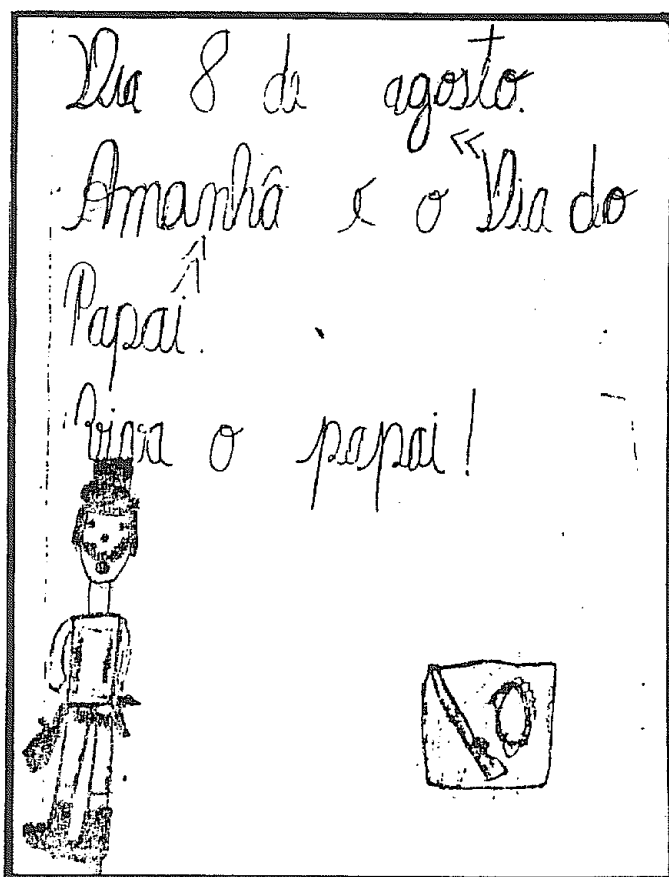 Dia 8 de agosto.
Amanhã é o "Dia do
Papai.
Viva o papai!